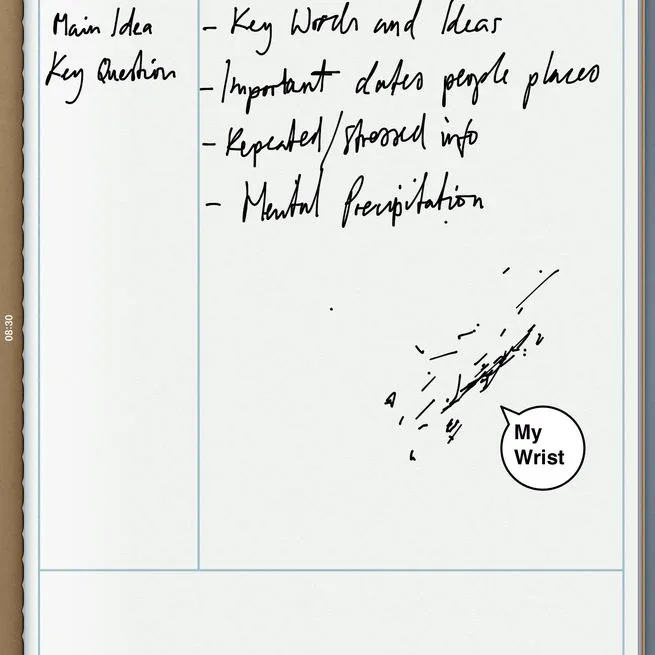 Main Idea
Key Question
- Key Words and Ideas
- Important dates people places
- Repeated/Stressed info
- Mental Precipitation
My
Wrist
08:30